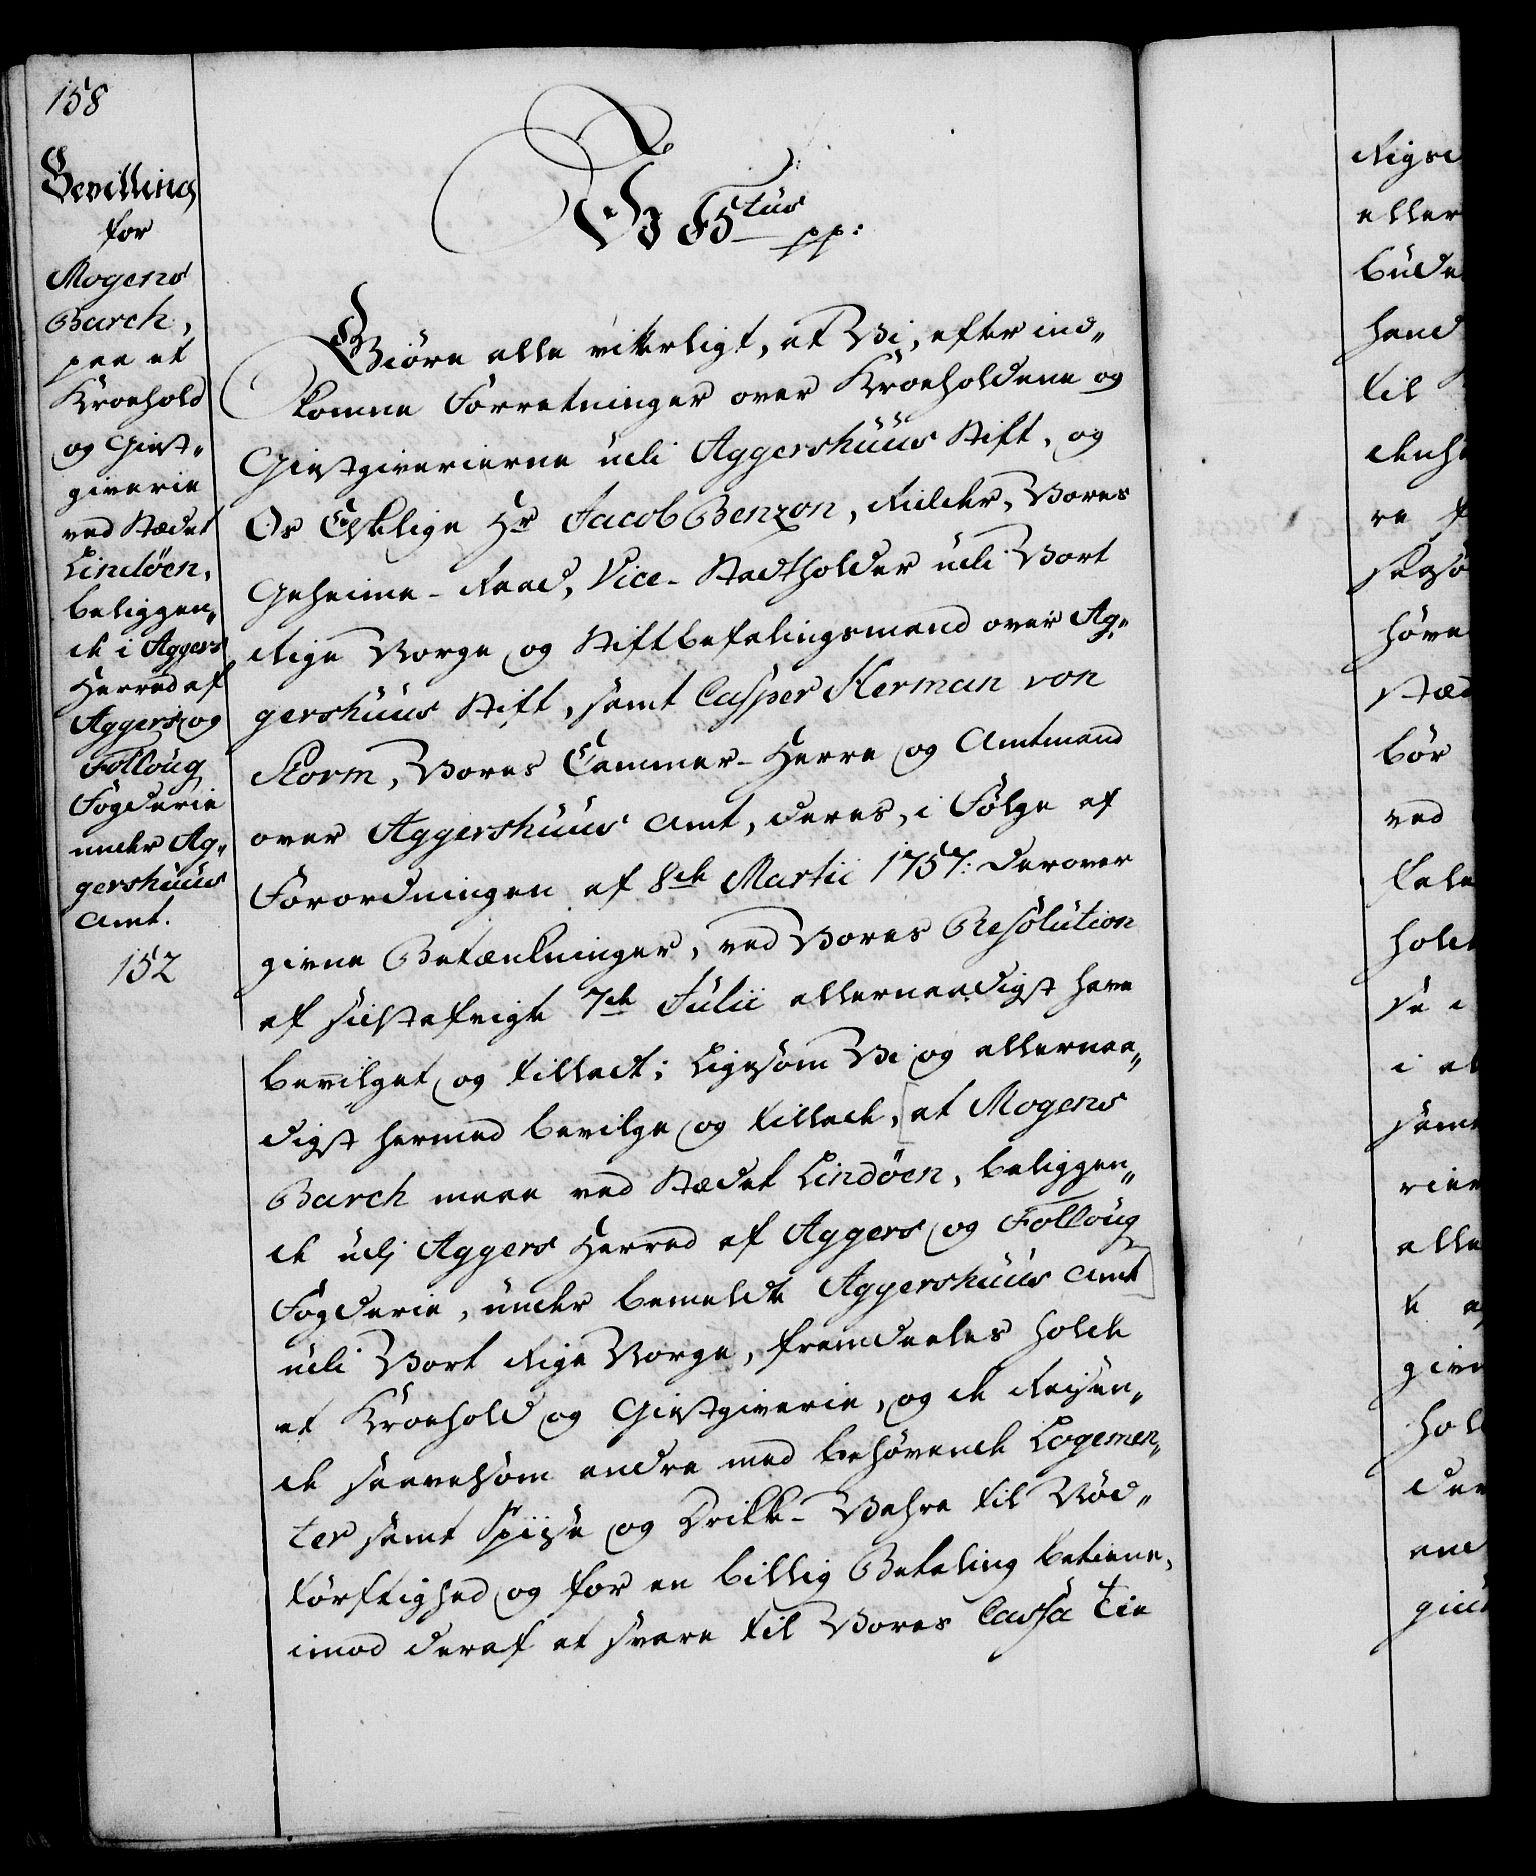 158
Bevilling
for
Mogens
Barch,
paa et
Kroehold
og Giest„
giverie
ved Stædet
Lindöen,
beliggen„
de i Aggers
Herred af
Aggers og
Follöug
Fogderie
under Ag„
gershuus
Amt.
152
V F5tus pp:
Giöre alle vitterligt, at Vi, efter ind„
komne Forretninger over Kroeholdene og
Giestgiverierne udi Aggershuus Stift, og
Os Elskelige Hr Jacob Benzon, Ridder, Vores
Geheime-Raad, Vice-Stadtholder udi Vort
Rige Norge og Stiftbefalingsmand over Ag„
gershuus Stift, samt Casper Herman von
Storm, Vores Cammer-Herre og Amtmand
over Aggershuus Amt, deres, i Følge af
Forordningen af 8de Martii 1757: derover
givne Betænkninger, ved Vores Resolution
af sidstafvigte 7de Julii allernaadigst have
bevilget og tilladt; Ligesom Vi og allernaa„
digst hermed bevilge og tillade, [at Mogens
Barch maae ved Stædet Lindöen, beliggen„
de udj Aggers Herred af Aggers og Follöug
Fogderie, under bemeldte Aggershuus Amt]
udi Vort Rige Norge, fremdeeles holde
et Kroehold og Giestgiverie, og de Reisen„
de saavelsom andre med behövende Logemen„
ter samt Spiise og Drikke-Vahre til Nød„
törftighed og for en billig Betaling betiene,
imod deraf at svare til Vores Cassa Tie
Rigsd
eller
bude
hand
til
densk
re
høve
stæd
bør
ved
hold
se i
i al
samt
rier
alle
give
hold
der
and